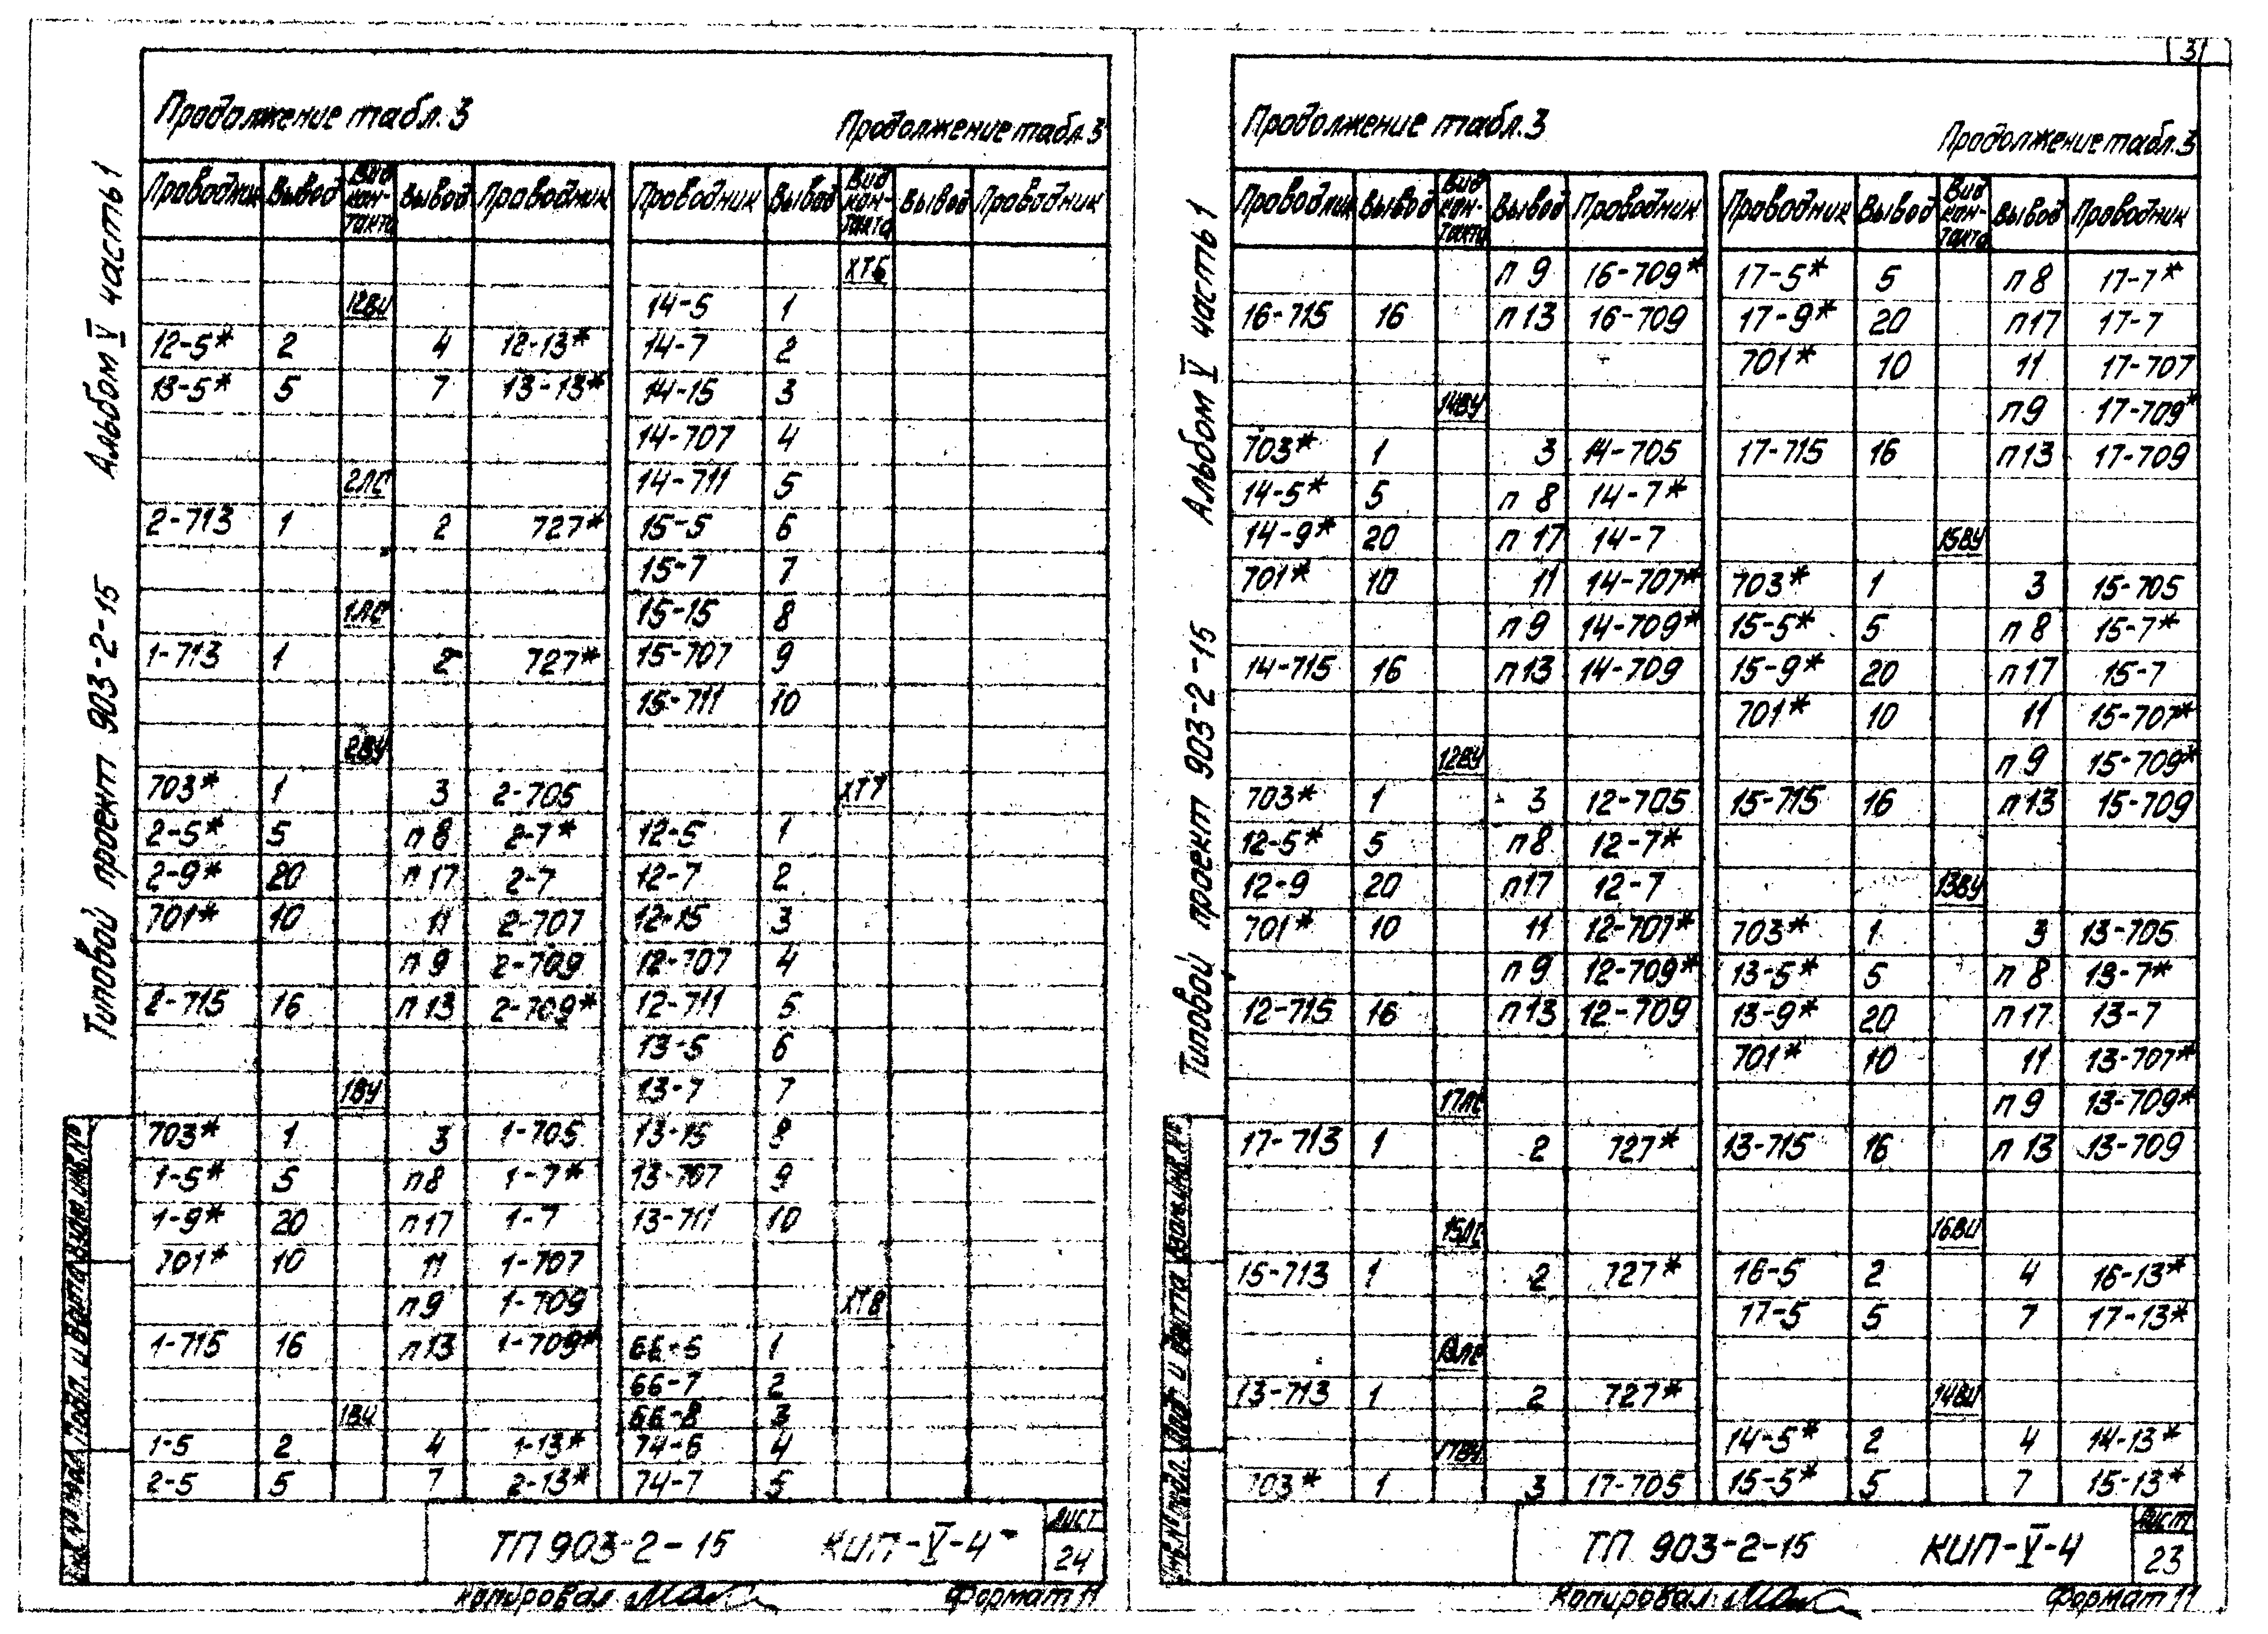 3
Альбом V часть 1
Типовой проект 903-2-15
Продолжение табл. 3
Проводник Вывод Вид контакта Вывод Проводник
12ВИ
12-5* 2 4 12-13*
13-5* 5 7 13-13*
2ЛС
2-713 1 2 727*
1ЛС
1-713 1 2 727*
2ВУ
703* 1 3 2-705
2-5* 5 п 8 2-7*
2-9* 20 п 17 2-7
701* 10 11 2-707
п 9 2-709
2-715 16 п 13 2-709*
1ВУ
703* 1 3 1-705
1-5* 5 п8 1-7*
1-9* 20 п17 1-7
701* 10 11 1-707
п9 1-709
1-715 16 п13 1-709*
1ВИ
1-5 2 4 1-13*
2-5 5 7 2-13*
Продолжение табл. 3
Проводник Вывод Вид контакта Вывод Проводник
14-5 1
14-7 2
14-15 3
14-707 4
14-711 5
15-5 6
15-7 7
15-15 8
15-707 9
15-711 10
ХТ7
12-5 1
12-7 2
12-15 3
12-707 4
12-711 5
13-5 6
13-7 7
13-15 8
13-707 9
13-711 10
ХТ8
66-6 1
66-7 2
66-8 3
74-6 4
74-7 5
ТП 903-2-15 КИП-V-4
Лист
24
Копировал
Формат 11
Альбом V часть 1
Типовой проект 903-2-15
Продолжение табл. 3
Проводник Вывод Вид контакта Вывод Проводник
п 9 16-709*
16-715 16 п 13 16-709
14ВУ
703* 1 3 14-705
14-5* 5 п 8 14-7*
14-9* 20 п 17 14-7
701* 10 11 14-707*
п 9 14-709*
14-715 16 п13 14-709
12ВУ
703* 1 3 12-705
12-5* 5 п8 12-7*
12-9 20 п17 12-7
701* 10 11 12-707*
п 9 12-709*
12-715 16 п13 12-709
17ЛС
17-713 1 2 727*
15ЛС
15-713 1 2 727*
13ЛС
13-713 1 2 727*
17ВУ
703* 1 3 17-705
Продолжение табл. 3
Проводник Вывод Вид контакта Вывод Проводник
17-5* 5 п 8 17-7*
17-9* 20 п17 17-7
701* 10 11 17-707
п9 17-709*
17-715 16 п13 17-709
15ВУ
703* 1 3 15-705
15-5* 5 п 8 15-7*
15-9* 20 п17 15-7
701* 10 11 15-707*
п 9 15-709*
15-715 16 п13 15-709
13ВУ
703* 1 3 13-705
13-5* 5 п 8 13-7*
13-9* 20 п17 13-7
701* 10 11 13-707*
п 9 13-709*
13-715 16 п 13 13-709
16ВИ
16-5 2 4 16-13*
17-5 5 7 17-13*
14ВИ
14-5* 2 4 14-13*
15-5* 5 7 15-13*
ТП 903-2-15 КИП-V-4
Лист
23
Копировал
Формат 11